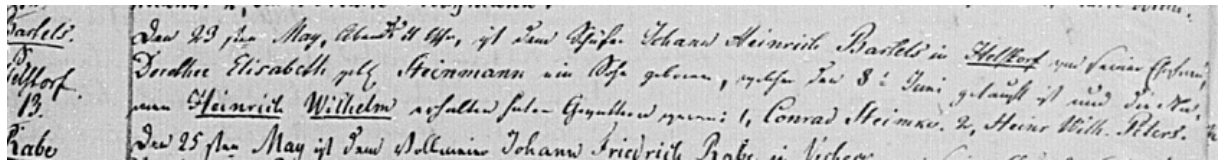 Bartels.
Den 23 sten May, Abends 11 Uhr, ist dem Schäfer Johann Heinrich Bartels in Helstorf von seiner Ehefrau,
Helstorf
Dorothee Elisabeth geb. Steinmann ein Sohn geboren, welcher den 8t Juni getauft ist und die Na-
13.
men Heinrich Wilhelm erhalten hat. Gevattern waren: 1, Conrad Steimke. 2, Heinr. Wilh. Peters.
Rabe
Den 25 sten May ist dem Vollmeier Johann Friedrich Rabe in